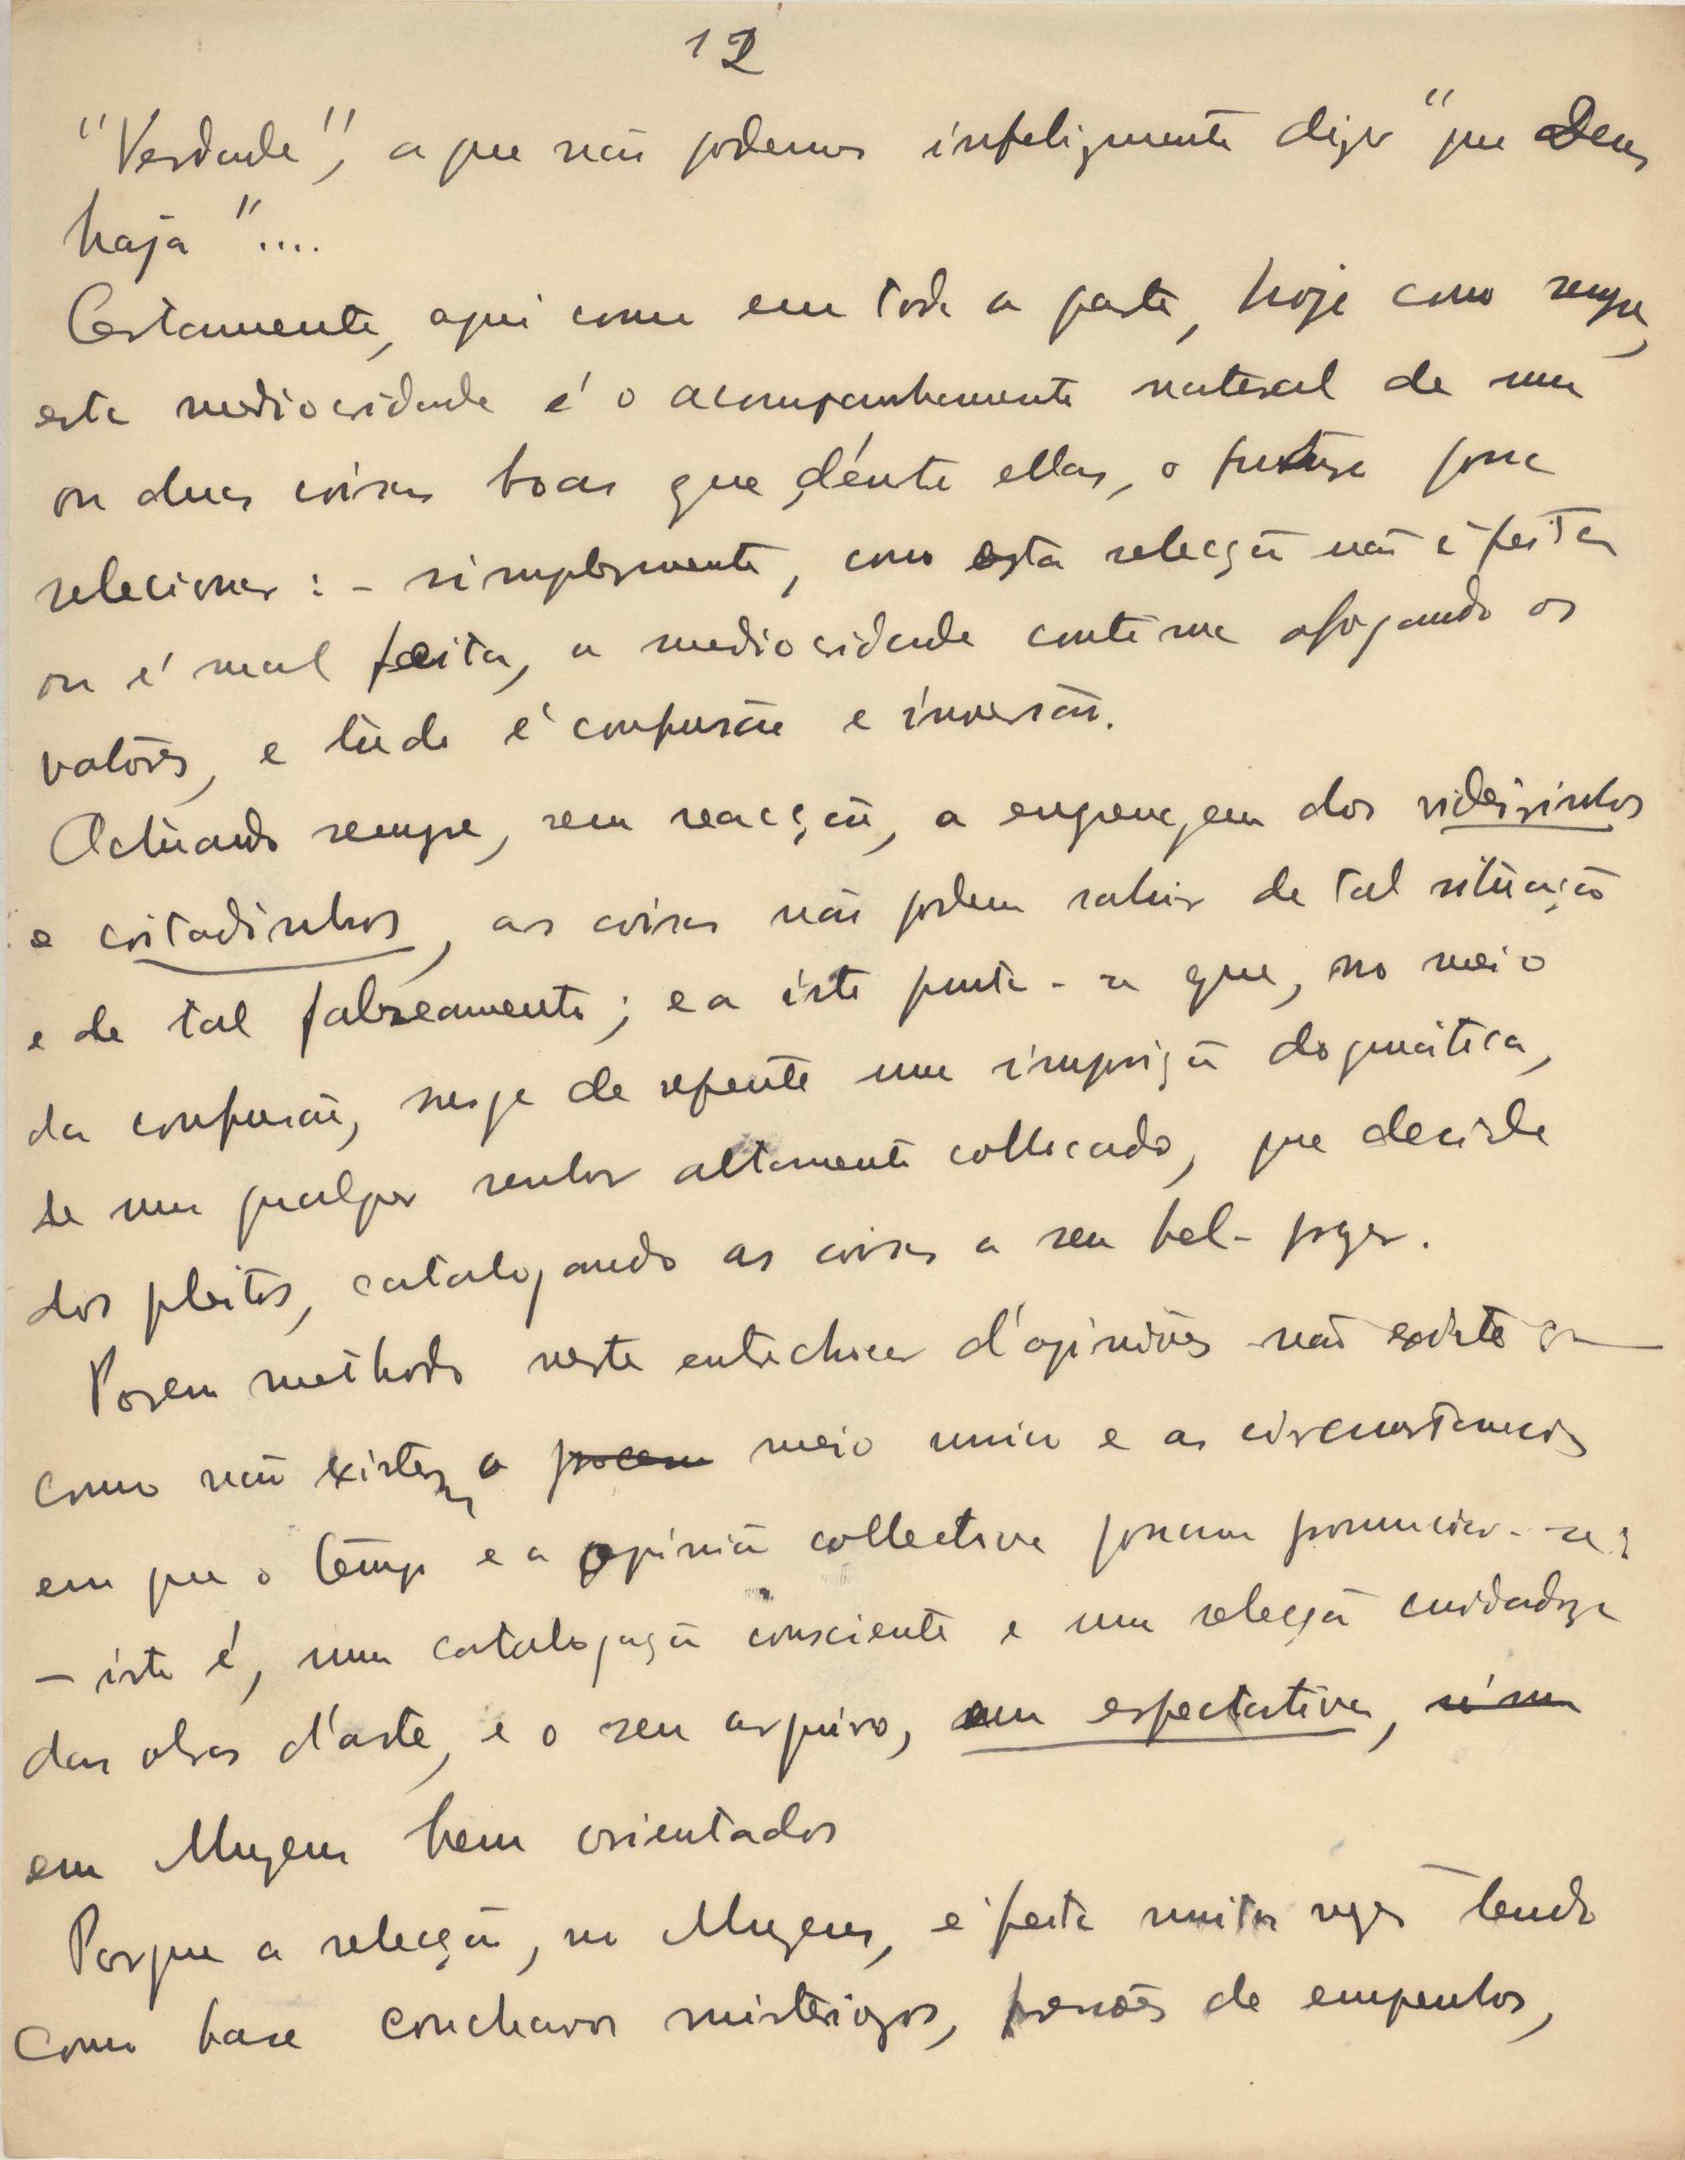 12
"Verdade", a que não podemos infelizmente dizer "que Deus
haja"....
Certamente, aqui como em toda a parte, hoje como sempre,
esta mediocridade é o acompanhamento natural de uma
ou duas coisas boas que, d'éntre ellas, o futuro possa
selecionar: - simplesmente, como esta selecção não é feita
ou é mal feita, a mediocridade continua afogando os
valôres, e túdo é confusão e inversão.
Actuando sempre, sem reacção, a engrenagem dos videirinhos
e coitadinhos, as coisas não podem sahir de tal situação
e de tal falseamento; e a isto junta-se que, no meio
da confusão, surge de repente uma imposição dogmática,
de um qualquer senhor altamente collocado, que decide
dos pleitos, catalogando as coisas a seu bel-prazer.
Porem methodo neste entrechocar d'opiniões não existe
como não existem o procem meio unico e as circunstancias
em que o tempo e a opinião collectiva possam pronunciar-se;
- isto é, uma catalogação consciente e uma selecção cuidadoza
das obras d'arte, e o seu arquivo, em espectativa, só em
em Muzeus bem orientados
Porque a selecção, nos Muzeus, é feita muitas vezes tendo
como base conchavos misteriozos, pressões de empenhos,